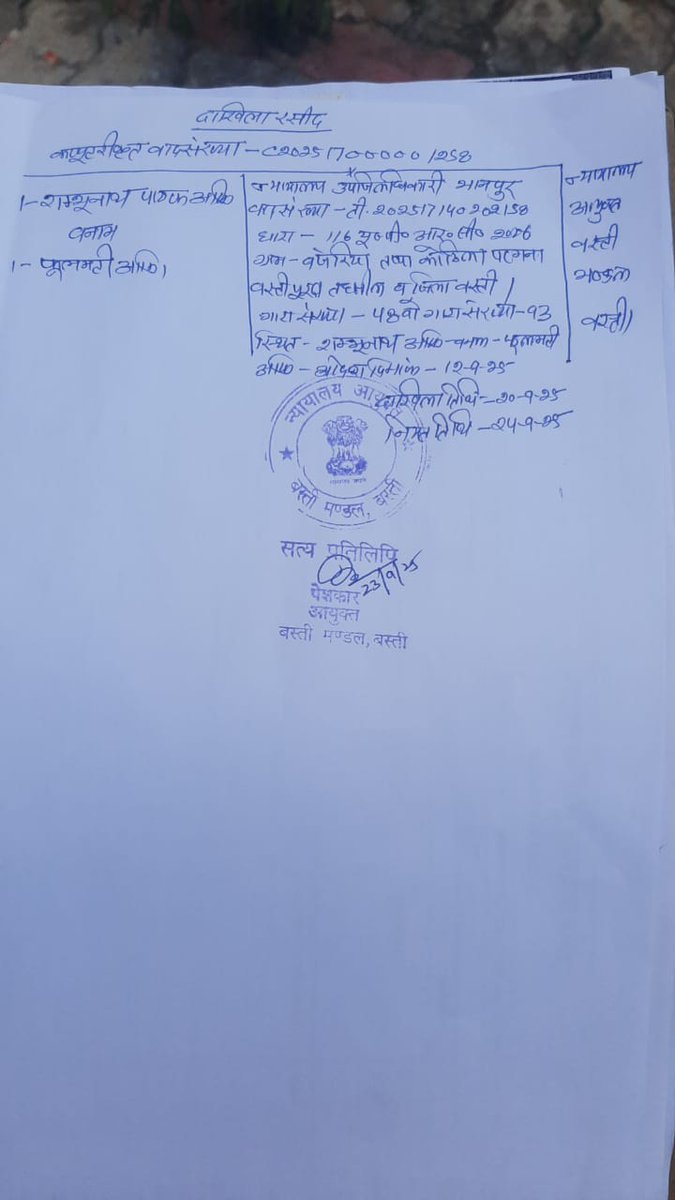 दाखिला रसीद
कम्प्यूटरीकृत वादसंख्या - C202517000001258
1- शम्भूनाथ पाठक आदि
बनाम
1- फूलमती आदि।
न्यायालय उपजिलाधिकारी भानपुर
वाद संख्या - टी. 202517140202158
धारा - 116 यू०पी० आर० सी० 2006
ग्राम - तप्पा कोठिला परगना
बस्ती पूरब तहसील व जिला बस्ती।
गाटा संख्या - 48 व गाटा संख्या - 93
स्थित - शम्भूनाथ आदि - बनाम - फूलमती
आदि - आदेश दिनांक - 12-9-25
दाखिला तिथि - 20-9-25
नियत तिथि - 24-9-25
न्यायालय
आयुक्त
बस्ती
मण्डल
बस्ती।
न्यायालय आयुक्त
बस्ती मण्डल, बस्ती
सत्य प्रतिलिपि
23/9/25
पेशकार
आयुक्त
बस्ती मण्डल, बस्ती